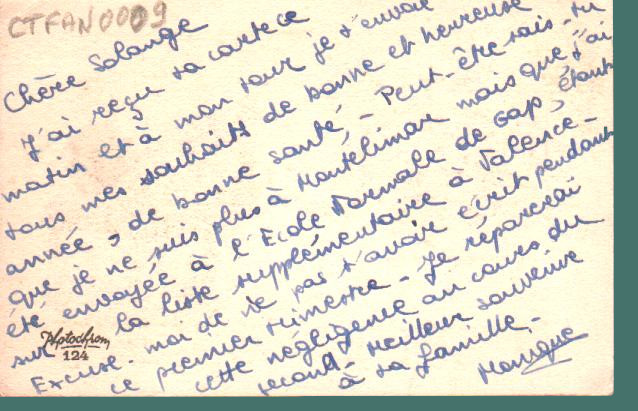 CTFAN0009
Chère Solange
J'ai reçu ta carte ce
matin et à mon tour je t'envoie
tous mes souhaits de bonne et heureuse
année, de bonne santé, - Peut-être sais-tu
que je ne suis plus à Montélimar mais que j'ai
été envoyée à l'Ecole Normale de Gap, étant
sur la liste supplémentaire à Valence -
Excuse-moi de ne pas t'avoir écrit pendant
ce premier trimestre - Je réparerai
cette négligence au cours du
second - Meilleur souvenir
à ta famille -
Monique
Photochrom
124